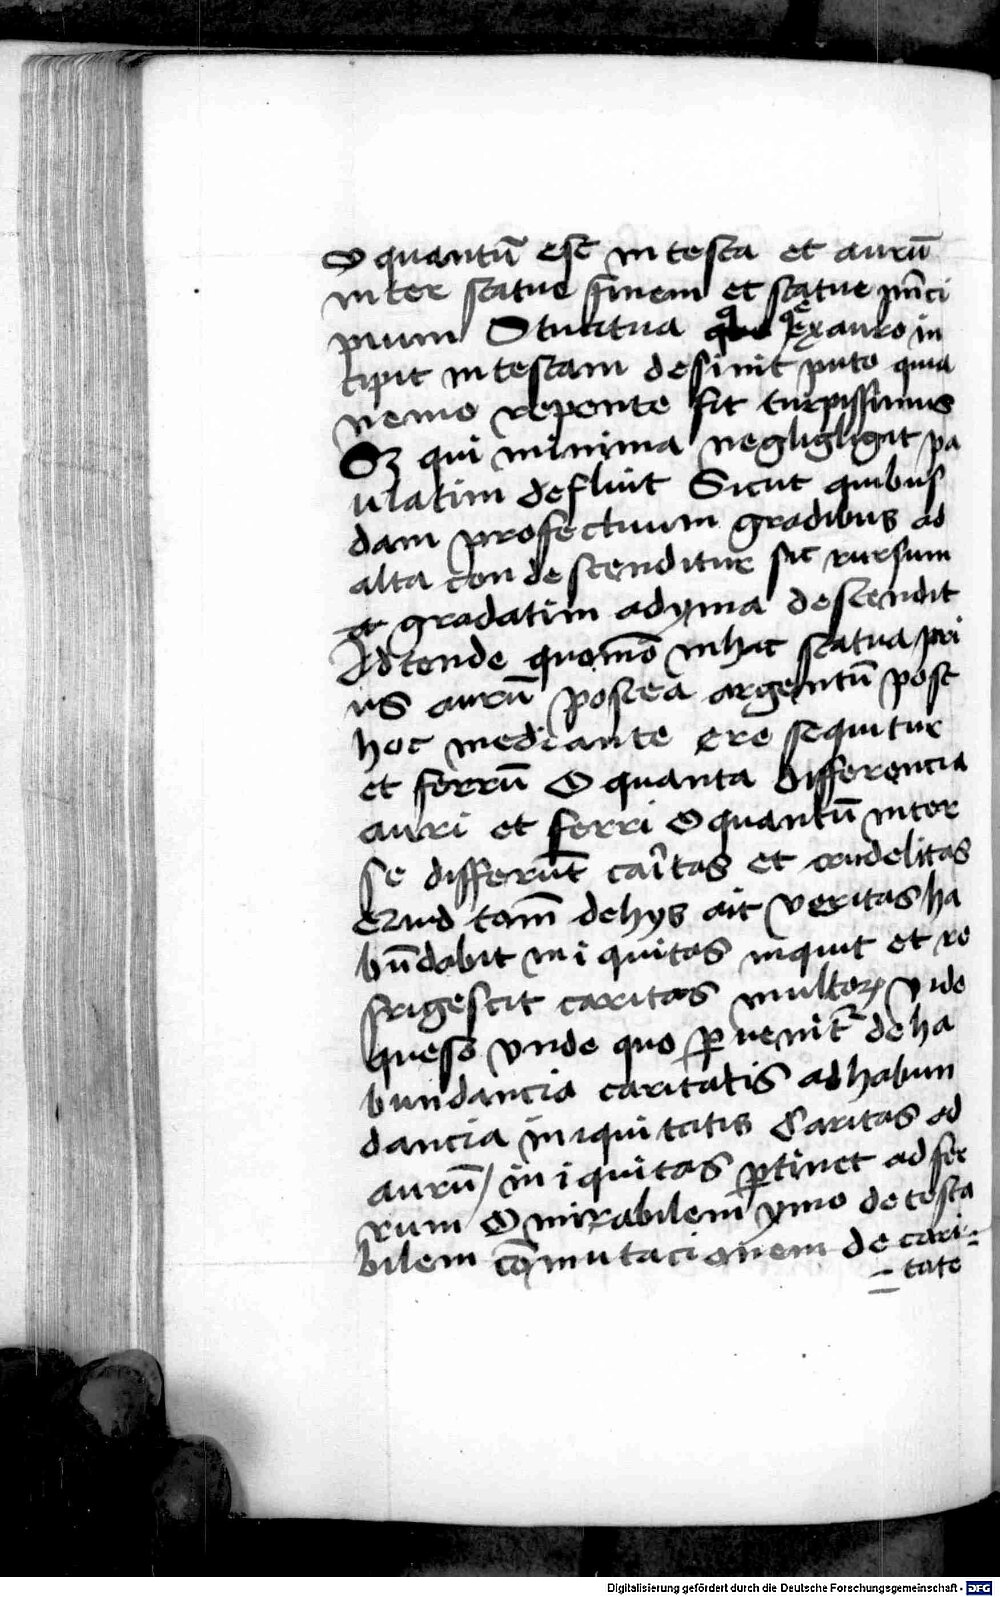 O quantū est in testa et aurū
inter statue finem et statue pn̄ci
pium Statua q̄ ex auro in
cipit in testam desinit puto quia
nemo repente fit turpissimus
Sz qui minima negligligit pa
ulatim defluit Sicut quibus
dam profectuum gradibus ad
alta condescenditur sic rursum
gradatim ad yma descendit
Adtende quomō in hac statua pri
us aurū postea argentū post
hoc mediante ere sequitur
et ferrū O quanta differencia
auri et ferri O quantū inter
se differūt caritas et crudelitas
tam̄ de hys ait veritas ha
būdabit iniquitas inquit et re
frigescit caritas multoꝝ vide
queso vnde quo ꝑuenit̄ de ha
bundancia caritatis ad habun
dancia iniquitatis Caritas ad
aurū / iniquitas ꝑtinet ad fer
rum O mirabilem ymo detesta
bilem cōmutacionem de cari=
=tate
Digitalisierung gefördert durch die Deutsche Forschungsgemeinschaft - DFG